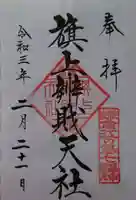 奉拝
旗上辨財天社
令和三年
二月
二十一日